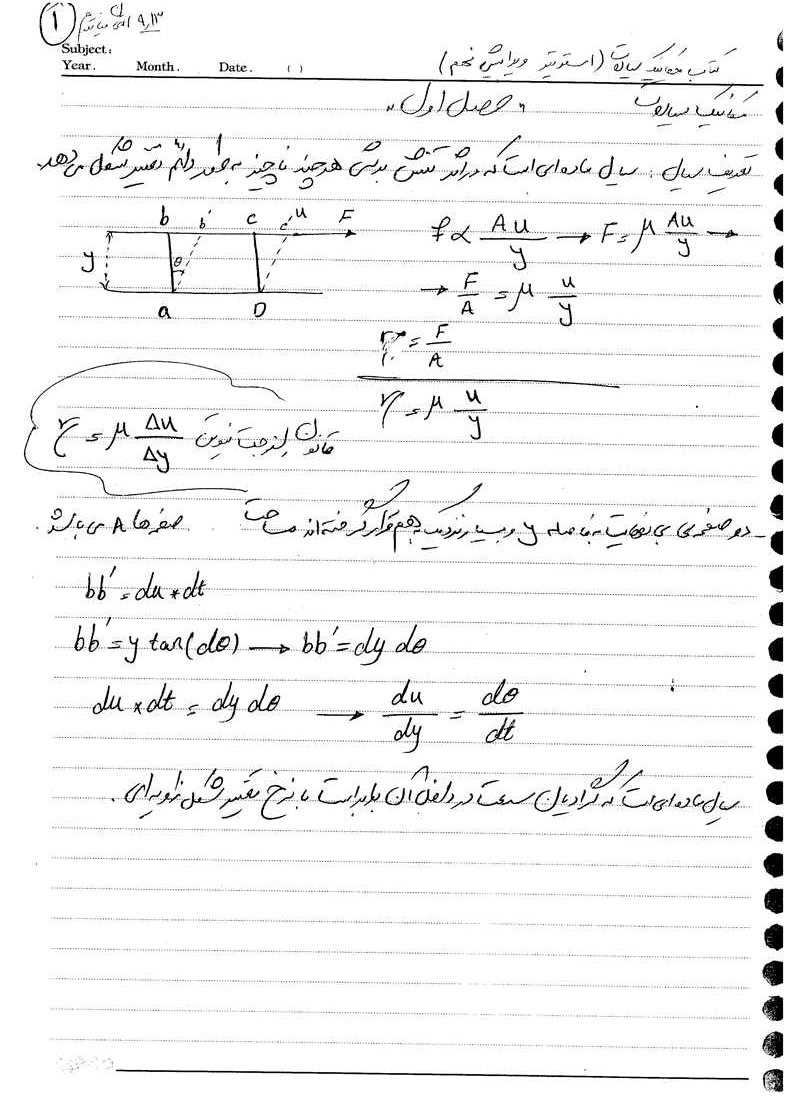 ۱
Subject:
Year. Month. Date. ( )
کتاب مکانیک سیالات (استریتر ویرایش نهم)
مکانیک سیالات
« فصل اول »
تعریف سیال : سیال ماده ای است که در اثر تنش برشی هر چند ناچیز به طور دائم تغییر شکل می دهد.
b b' c c' u F
y θ
a D
f ∝ Au/y → F = μ Au/y →
→ F/A = μ u/y
τ = F/A
τ = μ u/y
τ = μ Δu/Δy قانون لزجت نیوتن
- دو صفحه ی بی نهایت به فاصله y و بسیار نزدیک به هم قرار گرفته اند مساحت صفحه ها A می باشد.
bb' = du * dt
bb' = y tan(dθ) → bb' = dy dθ
du * dt = dy dθ → du/dy = dθ/dt
سیال ماده ای است که گرادیان سرعت در داخل آن برابر است با نرخ تغییر شکل زاویه ای .